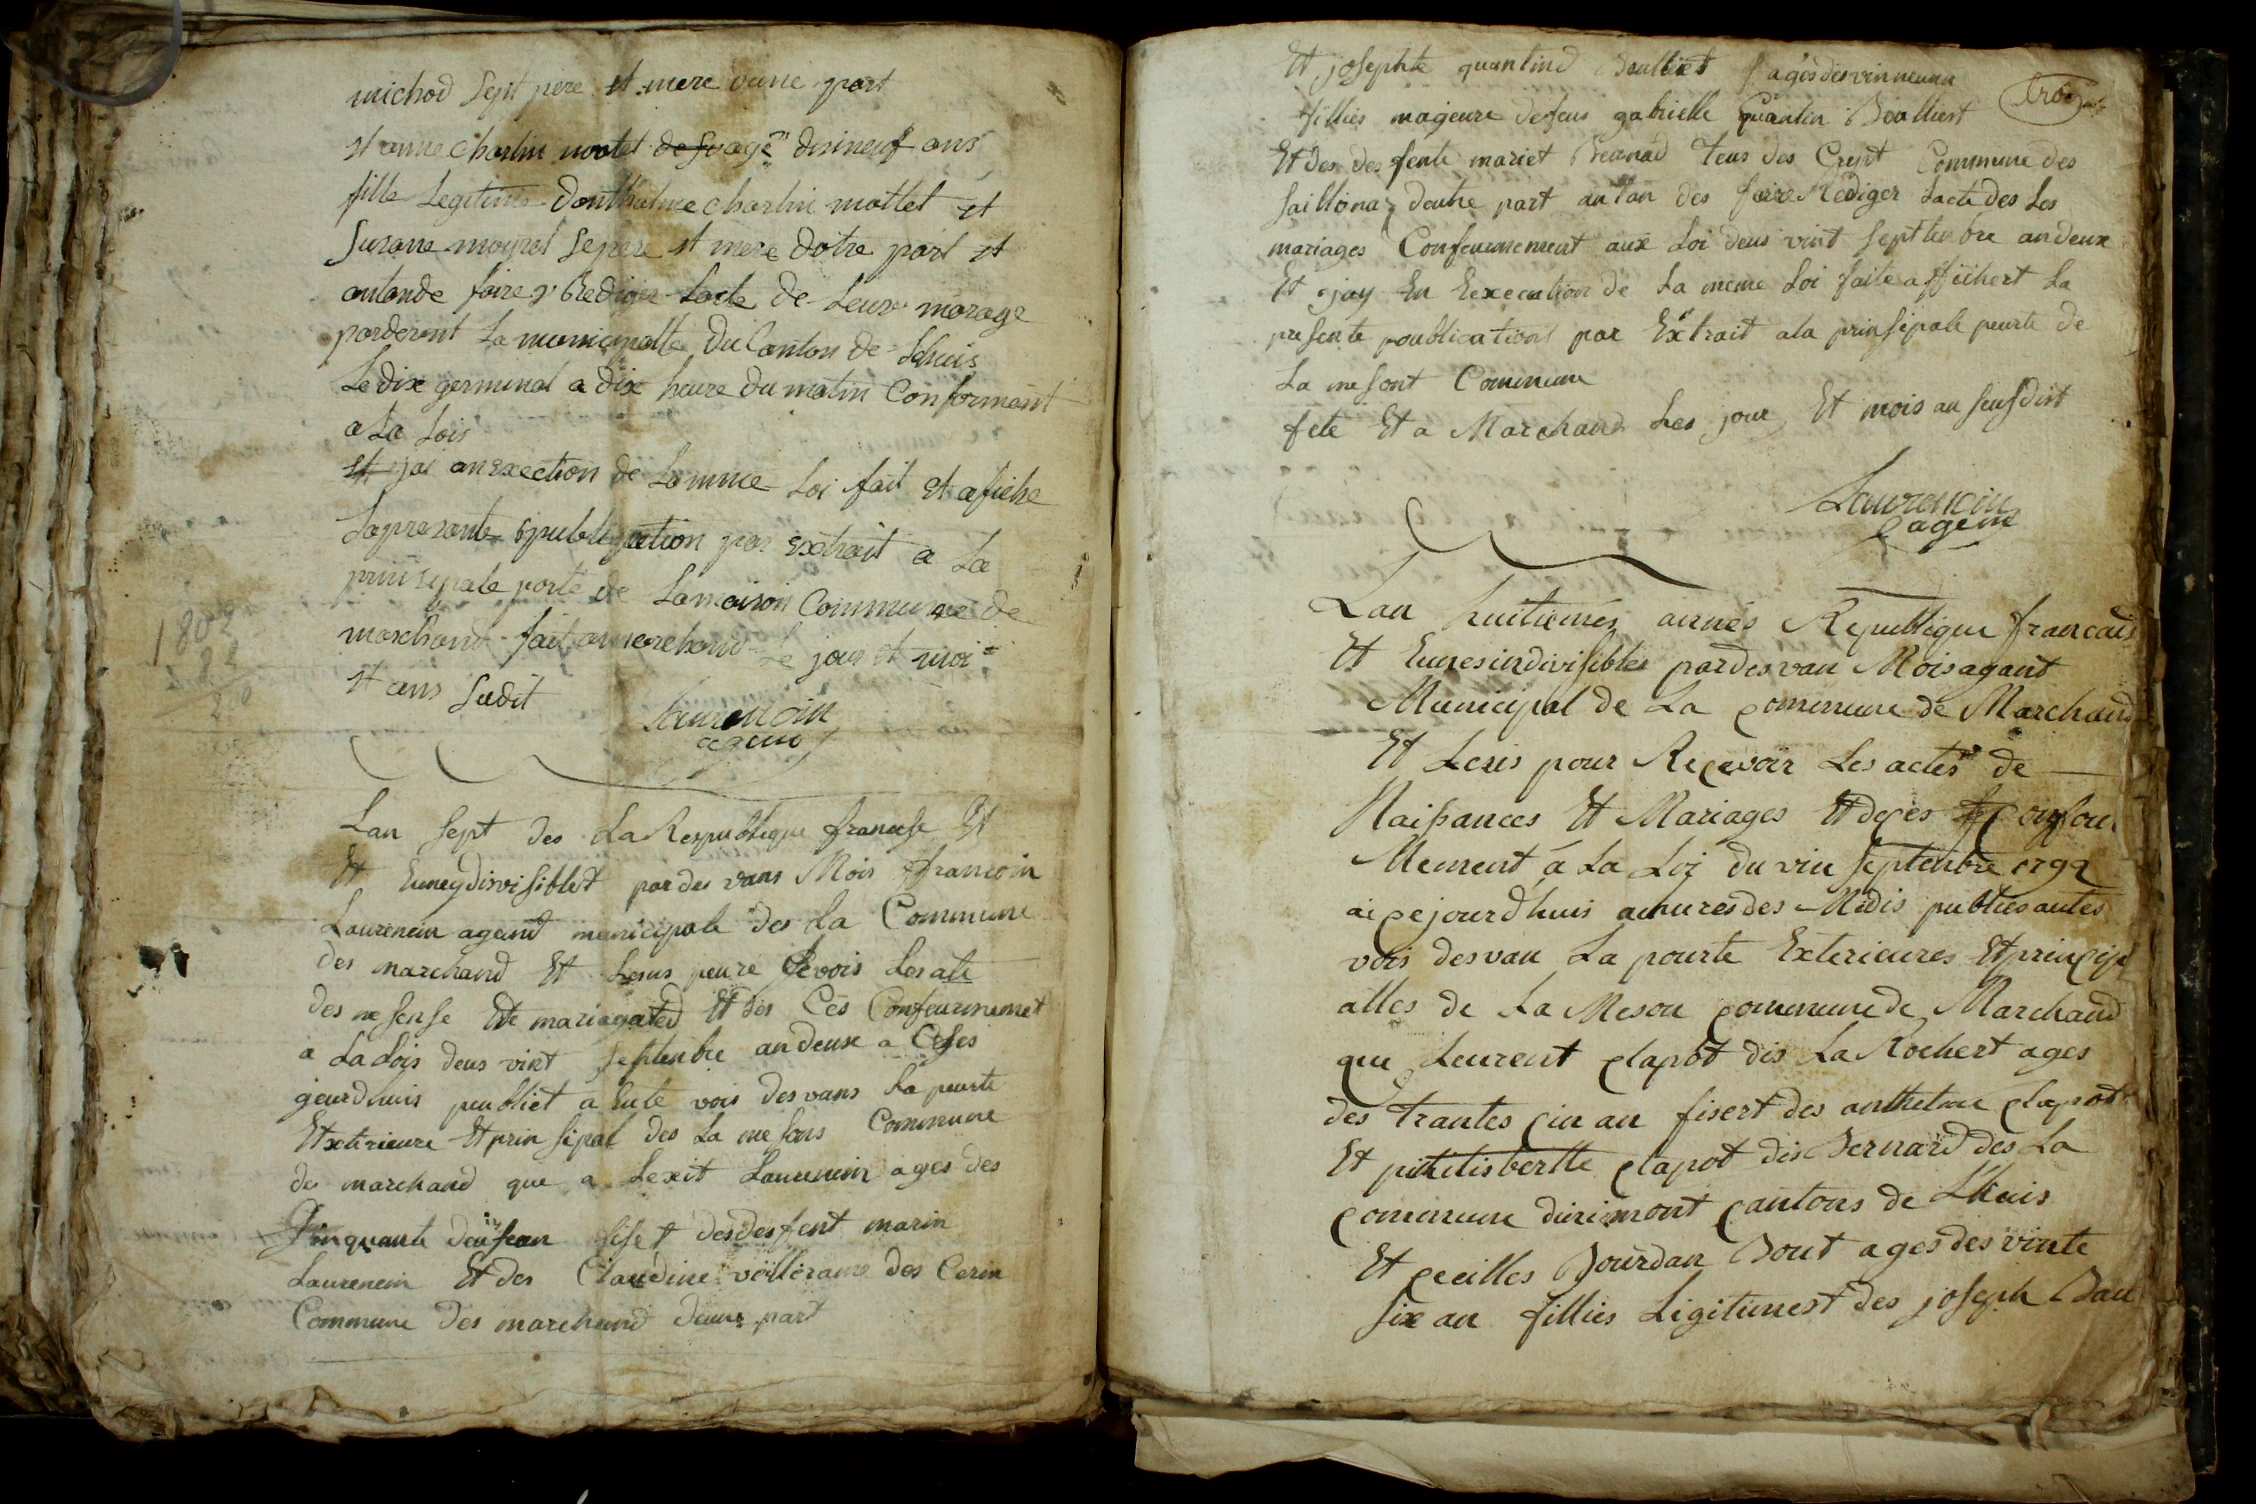 michod sest pere et mere dune part
et anne charlin motlet de su age disineuf ans
fille Legitime danthalme charlin mottet et
Surane moyret se pere et mere dotre part et
antande faire Rediger Lacte de Leur marage
parderent La municipalle du Canton de Lhuis
Le dix germinal a dix heure du matin Conformant
a La Lois
et jai an exection de Lamme Loi fait et afiche
Lapresante publigation par extrait a La
prinsipale porte de Lamaison Commune de
marchand fait a marchand Le jour et moi
et ans Sudit
Laurencin
agent
1802
22
Lan sept des La Respublique francise Et
Et Euneydisvisiblet par des vans Mois francoin
Laurencin ageant municipale des La Commune
des marchand Et Lesus peure Cevois Les ate
des nesense Et de mariagated Et des Ces Confeurmemet
a La Lois deus vint septenbre an deux a Ceses
jeurdhuis peubliet a Eute vois desvans La peurte
Extirieure Et prinsipal des La mesons Commune
de marchand que a Lexit Laurencin ages des
Sinquante deus an fiset des desfent marin
Laurencin Et des Claudine veillerame des Cerin
Commune des marchand deune part
Et josephte quantind Boulliet f ages des vinneuan
fillies mageure defeus gabrielle Quantin Boulliest
Et des desfente mariet Bernad Teus des Crept Commune des
Saillonaz deutre part antan des faire Rediger Lacte des Les
mariages Confeurmement aux Loi deus vint septtenbre an deux
Et jay En Eexecution de La meme Loi faite affichert La
presente poublications par Extrait a la prinsipale peurte de
La mesont Commune
fete Et a Marchand Les jour Et mois an susdist
Laurencin
agent
Lan huitiemes annes Republique francais
Et Eunes indivisibles pardesvan Mois agant
Municipal de La commune de Marchand
Et Leues pour Recevoir Les actes de
Naissances Et Mariages Et deces Confour
Mement a La Loi du vin Septenbre 1792
ai cejourdhuis a eures des Midis publies autes
vois desvan La pourte Exterieures Et princip
alles de La Meson commune de Marchand
que Leurent clapot dis La Rochert ages
des trantes cin an fisert des anthelme clapot
Et pithelisbertte clapot dis Bernard des La
commune dirimont cantons de Lhuis
Et cecilles Jourdan Bout ages des vinte
six an fillies Ligitimest des joseph Bau